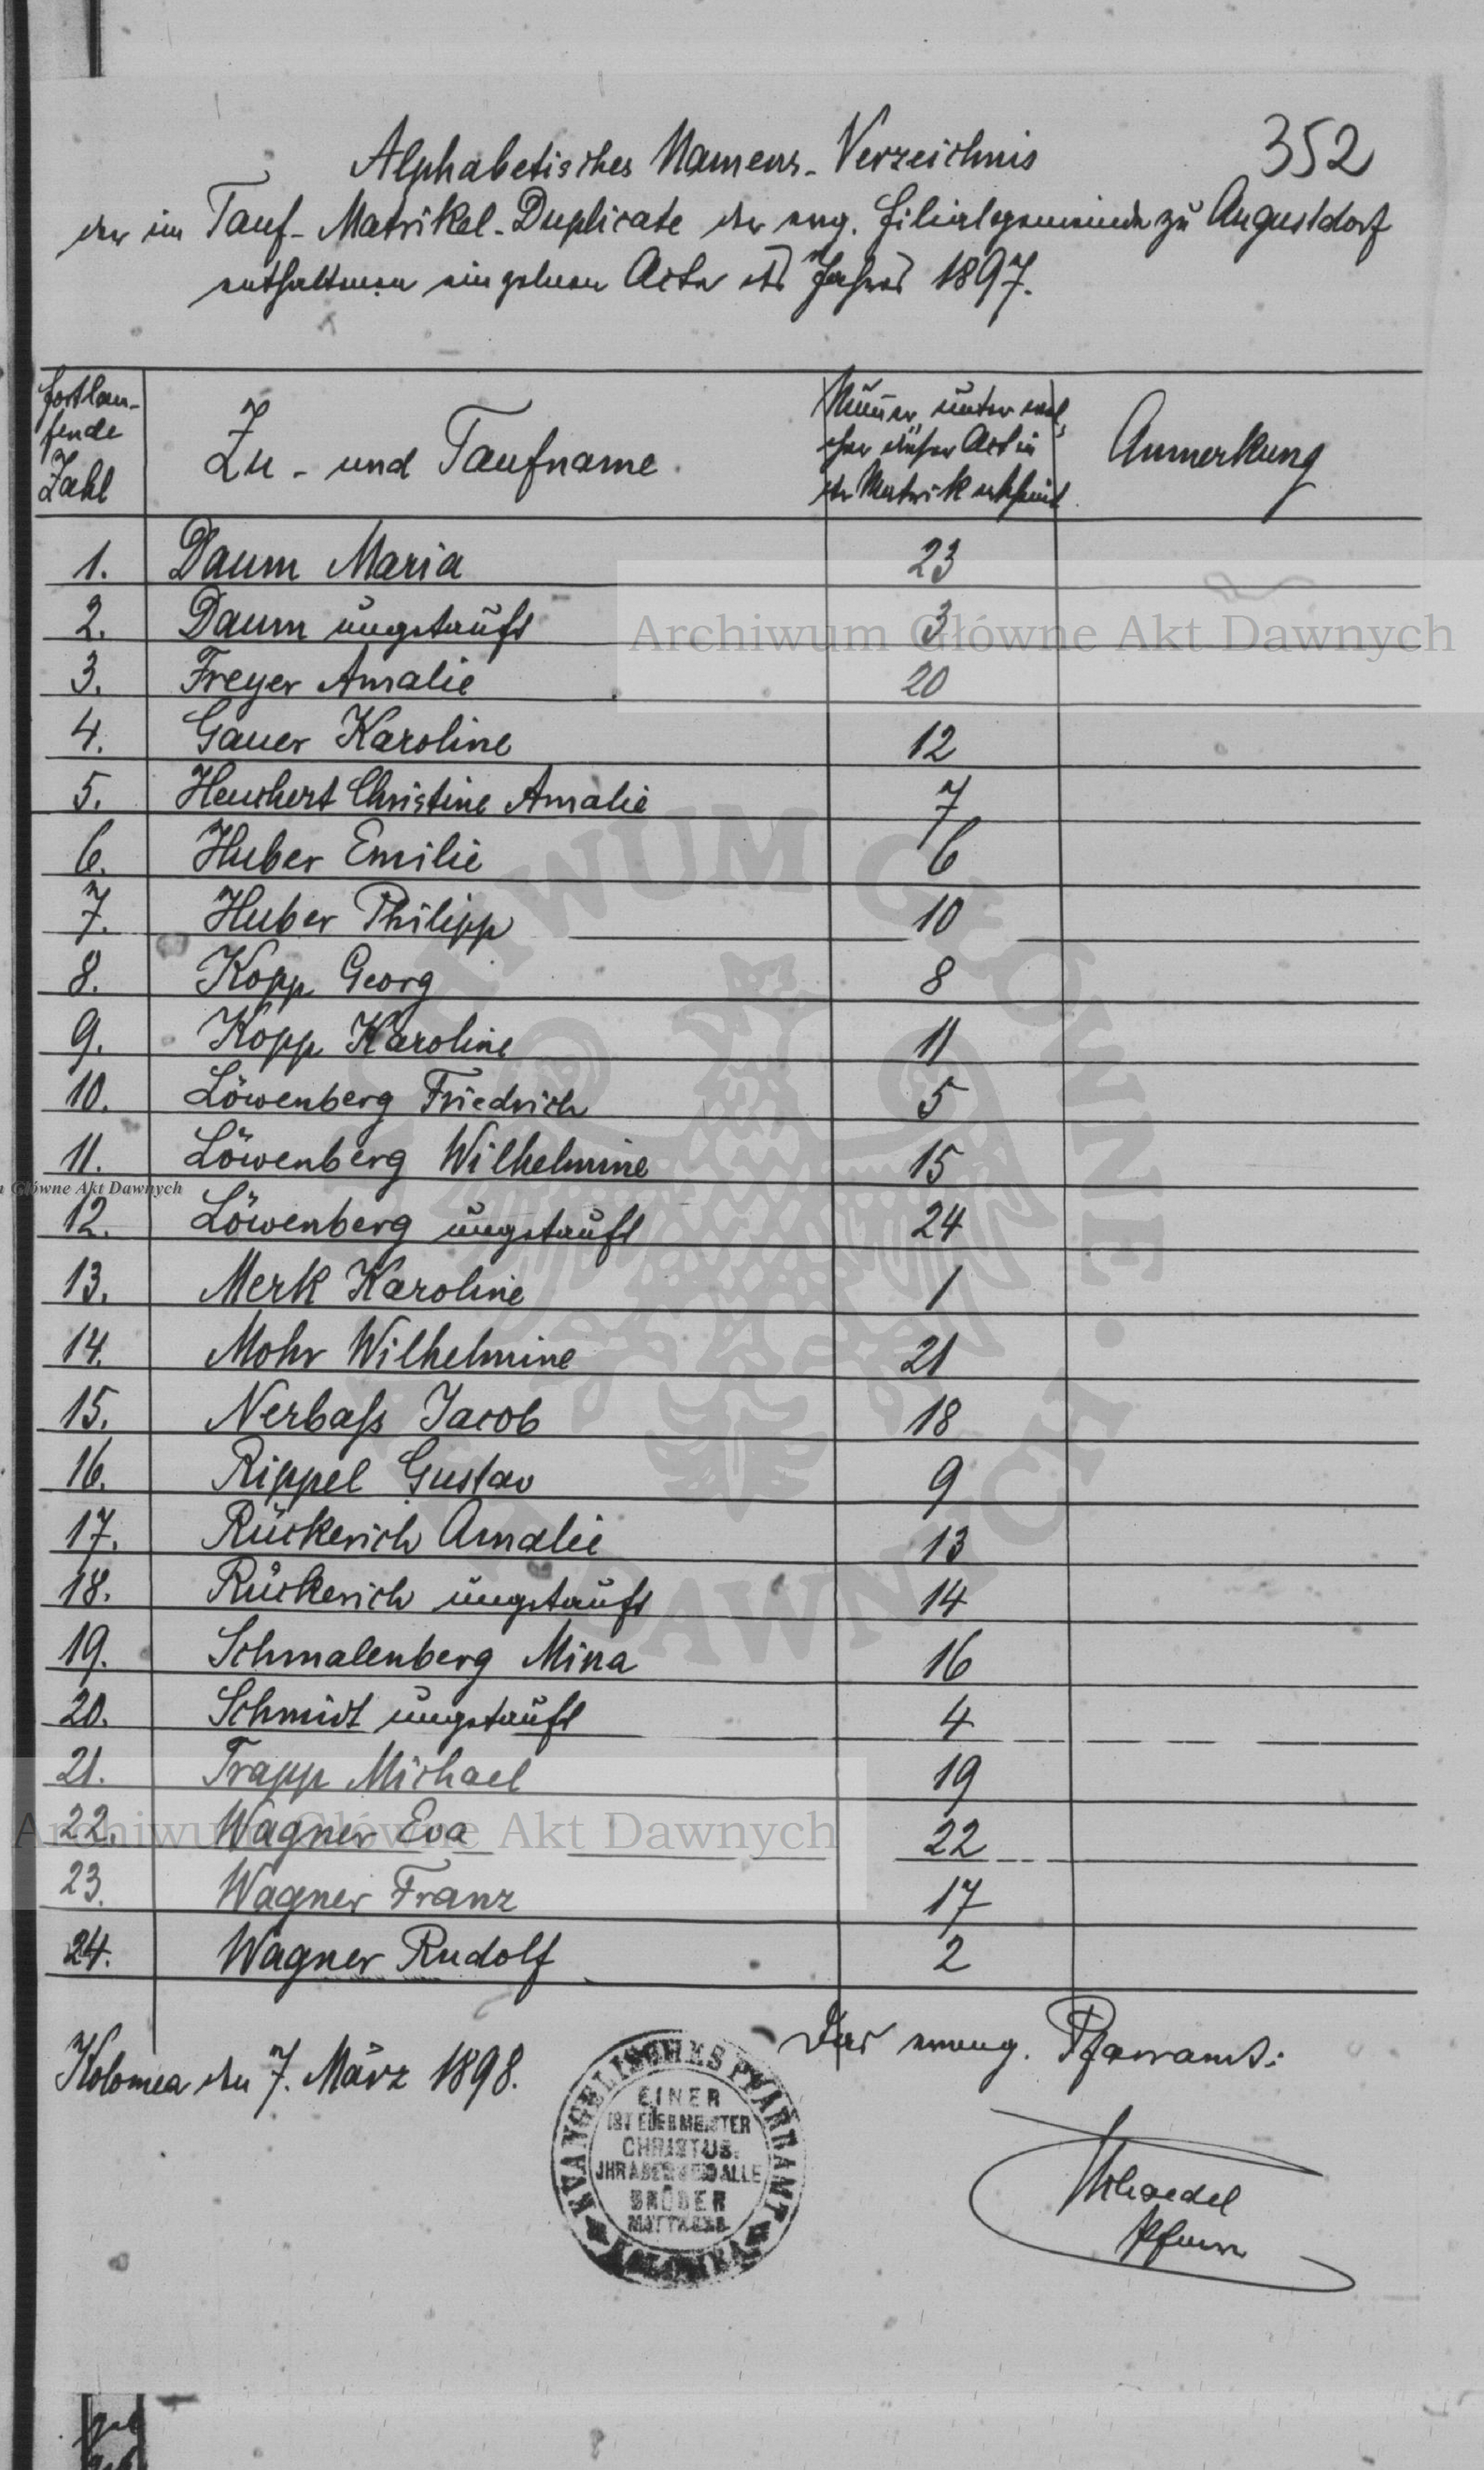 352
Alphabetisches Namens-Verzeichnis
der im Tauf-Matrikel-Duplicate der evg. Filialgemeinde zu Augustdorf
enthaltenen einzelnen Acte des Jahres 1897.
Fortlau-
fende
Zahl
Zu- und Taufname
Numer, unter wel-
cher dieser Act in
der Matrik erscheint
Anmerkung
1. Daum Maria 23
2. Daum ungetauft 3
Archiwum Główne Akt Dawnych
3. Freyer Amalie 20
4. Gauer Karoline 12
5. Heuchert Christine Amalie 7
6. Huber Emilie 6
7. Huber Philipp 10
8. Kopp Georg 8
9. Kopp Karoline 11
10. Löwenberg Friedrich 5
11. Löwenberg Wilhelmine 15
Główne Akt Dawnych
12. Löwenberg ungetauft 24
13. Merk Karoline 1
14. Mohr Wilhelmine 21
15. Nerbaß Jacob 18
16. Rippel Gustav 9
17. Rückerich Amalie 13
18. Rückerich ungetauft 14
19. Schmalenberg Mina 16
20. Schmidt ungetauft 4
21. Trapp Michael 19
22. Wagner Eva 22
Archiwum Główne Akt Dawnych
23. Wagner Franz 17
24. Wagner Rudolf 2
Kolomea den 7. März 1898.
Das evang. Pfarramt:
EVANGELISCHES PFARRAMT
EINER
IST EUER MEISTER
CHRISTUS.
IHR ABER SEID ALLE
BRÜDER
Pfarrer